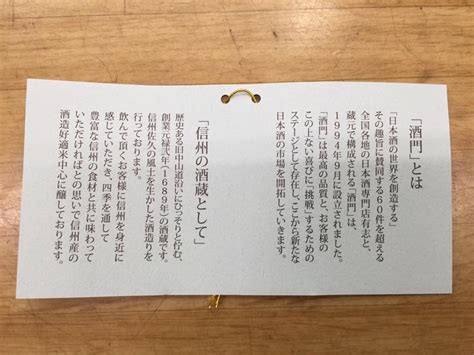 「酒門」とは
「日本酒の世界を創造する」
その趣旨に賛同する60件を超える
全国各地の日本酒専門店有志と、
蔵元で構成される「酒門」は、
1994年9月に設立されました。
「酒門」は最高の品質と、お客様の
この上ない喜びに「挑戦」するための
ステージとして存在し、ここから新たな
日本酒の市場を開拓していきます。
「信州の酒蔵として」
歴史ある旧中山道沿いにひっそりと佇む、
創業元禄弐年(1689年)の酒蔵です。
信州佐久の風土を生かした酒造りを
行っております。
飲んで頂くお客様に信州を身近に
感じていただき、四季を通して
豊富な信州の食材と共に味わって
いただければとの思いで信州産の
酒造好適米中心に醸しております。